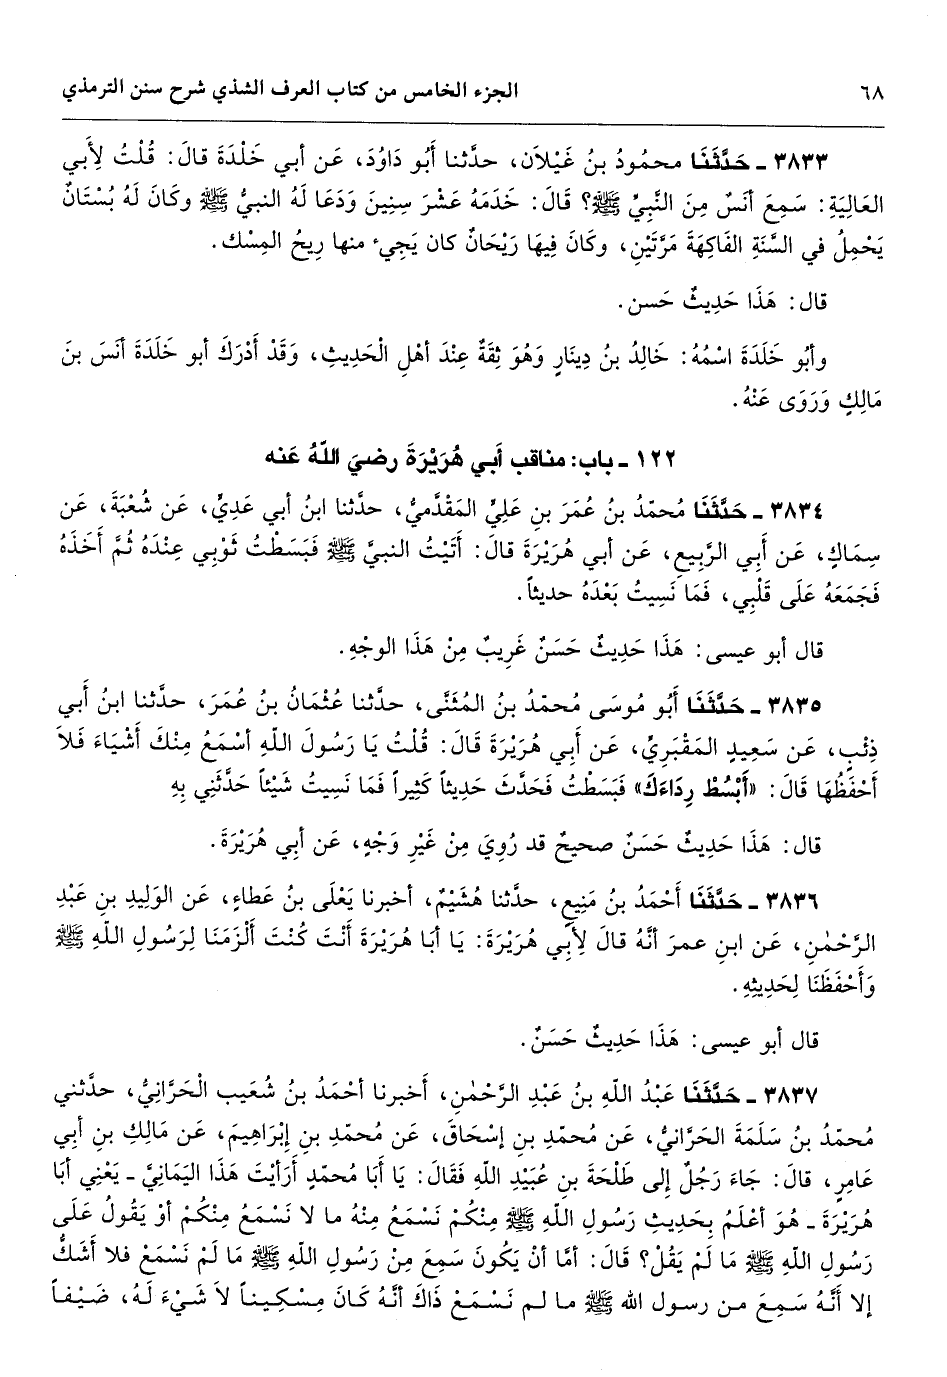 ٦٨ الجزء الخامس من كتاب العرف الشذي شرح سنن الترمذي
٣٨٣٣ ـ حَدَّثَنَا محمودُ بنُ غَيْلاَن، حدَّثنا أَبُو دَاوُدَ، عَن أبي خَلْدَةَ قالَ: قُلْتُ لِأَبي
العَالِيَةِ: سَمِعَ أَنَسٌ مِنَ النَّبِيِّ ﷺ؟ قَالَ: خَدَمَهُ عَشْرَ سِنِينَ وَدَعَا لَهُ النبيُّ ﷺ وكَانَ لَهُ بُسْتَانٌ
يَحْمِلُ في السَّنَةِ الفَاكِهَةَ مَرَّتَيْنِ، وكَانَ فِيهَا رَيْحَانٌ كان يَجِيء منها رِيحُ المِسْك.
قال: هَذَا حَدِيثٌ حَسن.
وأبُو خَلْدَةَ اسْمُهُ: خَالِدُ بنُ دِينَارٍ وَهُوَ ثِقَةٌ عِنْدَ أهْلِ الْحَدِيثِ، وَقَدْ أَدْرَكَ أبو خَلْدَةَ أنَسَ بنَ
مَالِكٍ وَرَوَى عَنْهُ.
١٢٢ ـ باب: مناقب أَبي هُرَيْرَةَ رضيَ اللَّهُ عَنه
٣٨٣٤ ـ حَدَّثَنَا مُحمّدُ بنُ عُمَرَ بنِ عَلِيِّ المَقْدَّميُّ، حدَّثنا ابنُ أبي عَدِيٍّ، عَن شُعْبَةَ، عَن
سِمَاكٍ، عَن أَبِي الرَّبِيعِ، عَن أبي هُرَيْرَةَ قالَ: أَتَيْتُ النبيَّ ﷺ فَبَسَطْتُ ثَوْبِي عِنْدَهُ ثُمَّ أَخَذَهُ
فَجَمَعَهُ عَلَى قَلْبِي، فَمَا نَسِيتُ بَعْدَهُ حديثاً.
قال أبو عيسى: هَذَا حَدِيثٌ حَسَنٌ غَرِيبٌ مِنْ هَذَا الوجْهِ.
٣٨٣٥ ـ حَدَّثَنَا أَبُو مُوسَى مُحمّدُ بنُ المُثَنَّى، حدَّثنا عُثْمَانُ بنُ عُمَرَ، حدَّثنا ابنُ أَبي
ذِئْبٍ، عَن سَعِيدٍ المَقْبَرِيِّ، عَن أبي هُرَيْرَةَ قَالَ: قُلْتُ يَا رَسُولَ اللَّهِ أسْمَعُ مِنْكَ أَشْيَاءَ فَلاَ
أَحْفَظُهَا قَالَ: «أَبْسُطْ رِدَاءَكَ» فَبَسَطْتُ فَحَدَّثَ حَدِيثاً كَثِيراً فَمَا نَسِيتُ شَيْئاً حَدَّثَنِي بِهِ
قال: هَذَا حَدِيثٌ حَسَنٌ صحيحٌ قد رُوِيَ مِنْ غَيْرِ وَجْهٍ، عَن أبِي هُرَيْرَةَ.
٣٨٣٦ ـ حَدَّثَنَا أَحْمَدُ بنُ مَنِيعٍ، حدَّثنا هُشَيْمٌ، أخبرنا يَعْلَى بنُ عَطاءٍ، عَن الوَلِيدِ بنِ عَبْدِ
الرَّحْمٰنِ، عَن ابنِ عمرَ أنَّهُ قالَ لأَبِي هُرَيْرَةَ: يَا أبَا هُرَيْرَةَ أَنْتَ كُنْتَ أَلْزَمَنَا لِرَسُولِ اللَّهِ ﷺ
وَأَحْفَظَنَا لِحَدِيثِهِ.
قال أبو عيسى: هَذَا حَدِيثٌ حَسَنٌ.
٣٨٣٧ ـ حَدَّثَنَا عَبْدُ اللَّهِ بنُ عَبْدِ الرَّحْمٰنِ، أَخبرنا أحْمَدُ بنُ شُعَيب الْحَرَّانِيُّ، حدَّثني
مُحمّدُ بنُ سَلَمَةَ الحَرَّانيُّ، عَن مُحمّدِ بنِ إسْحَاقَ، عَن مُحمّدِ بنِ إبْرَاهِيمَ، عَن مَالِكِ بنِ أبي
عَامِرٍ، قالَ: جَاءَ رَجُلٌ إلى طَلْحَةَ بنِ عُبَيْدِ اللَّهِ فَقَالَ: يَا أَبَا مُحمّدٍ أَرَأيْتَ هَذَا اليَمَانِيَّ ـ يَعْنِي أبَا
هُرَيْرَةَ ـ هُوَ أعْلَمُ بِحَدِيثِ رَسُولِ اللَّهِ ﷺ مِنْكُمْ نَسْمَعُ مِنْهُ ما لا نَسْمَعُ مِنْكُمْ أوْ يَقُولُ عَلَى
رَسُولِ اللَّهِ ﷺ مَا لَمْ يَقُلْ؟ قَالَ: أمَّا أنْ يَكُونَ سَمِعَ مِنْ رَسُولِ اللَّهِ ﷺ مَا لَمْ نَسْمَعْ فلا أَشَكُّ
إلا أَنَّهُ سَمِعَ من رسول الله ﷺ ما لم نَسْمَعْ ذَاكَ أنَّهُ كَانَ مِسْكِيناً لاَ شَيْءَ لَهُ، ضَيْفاً